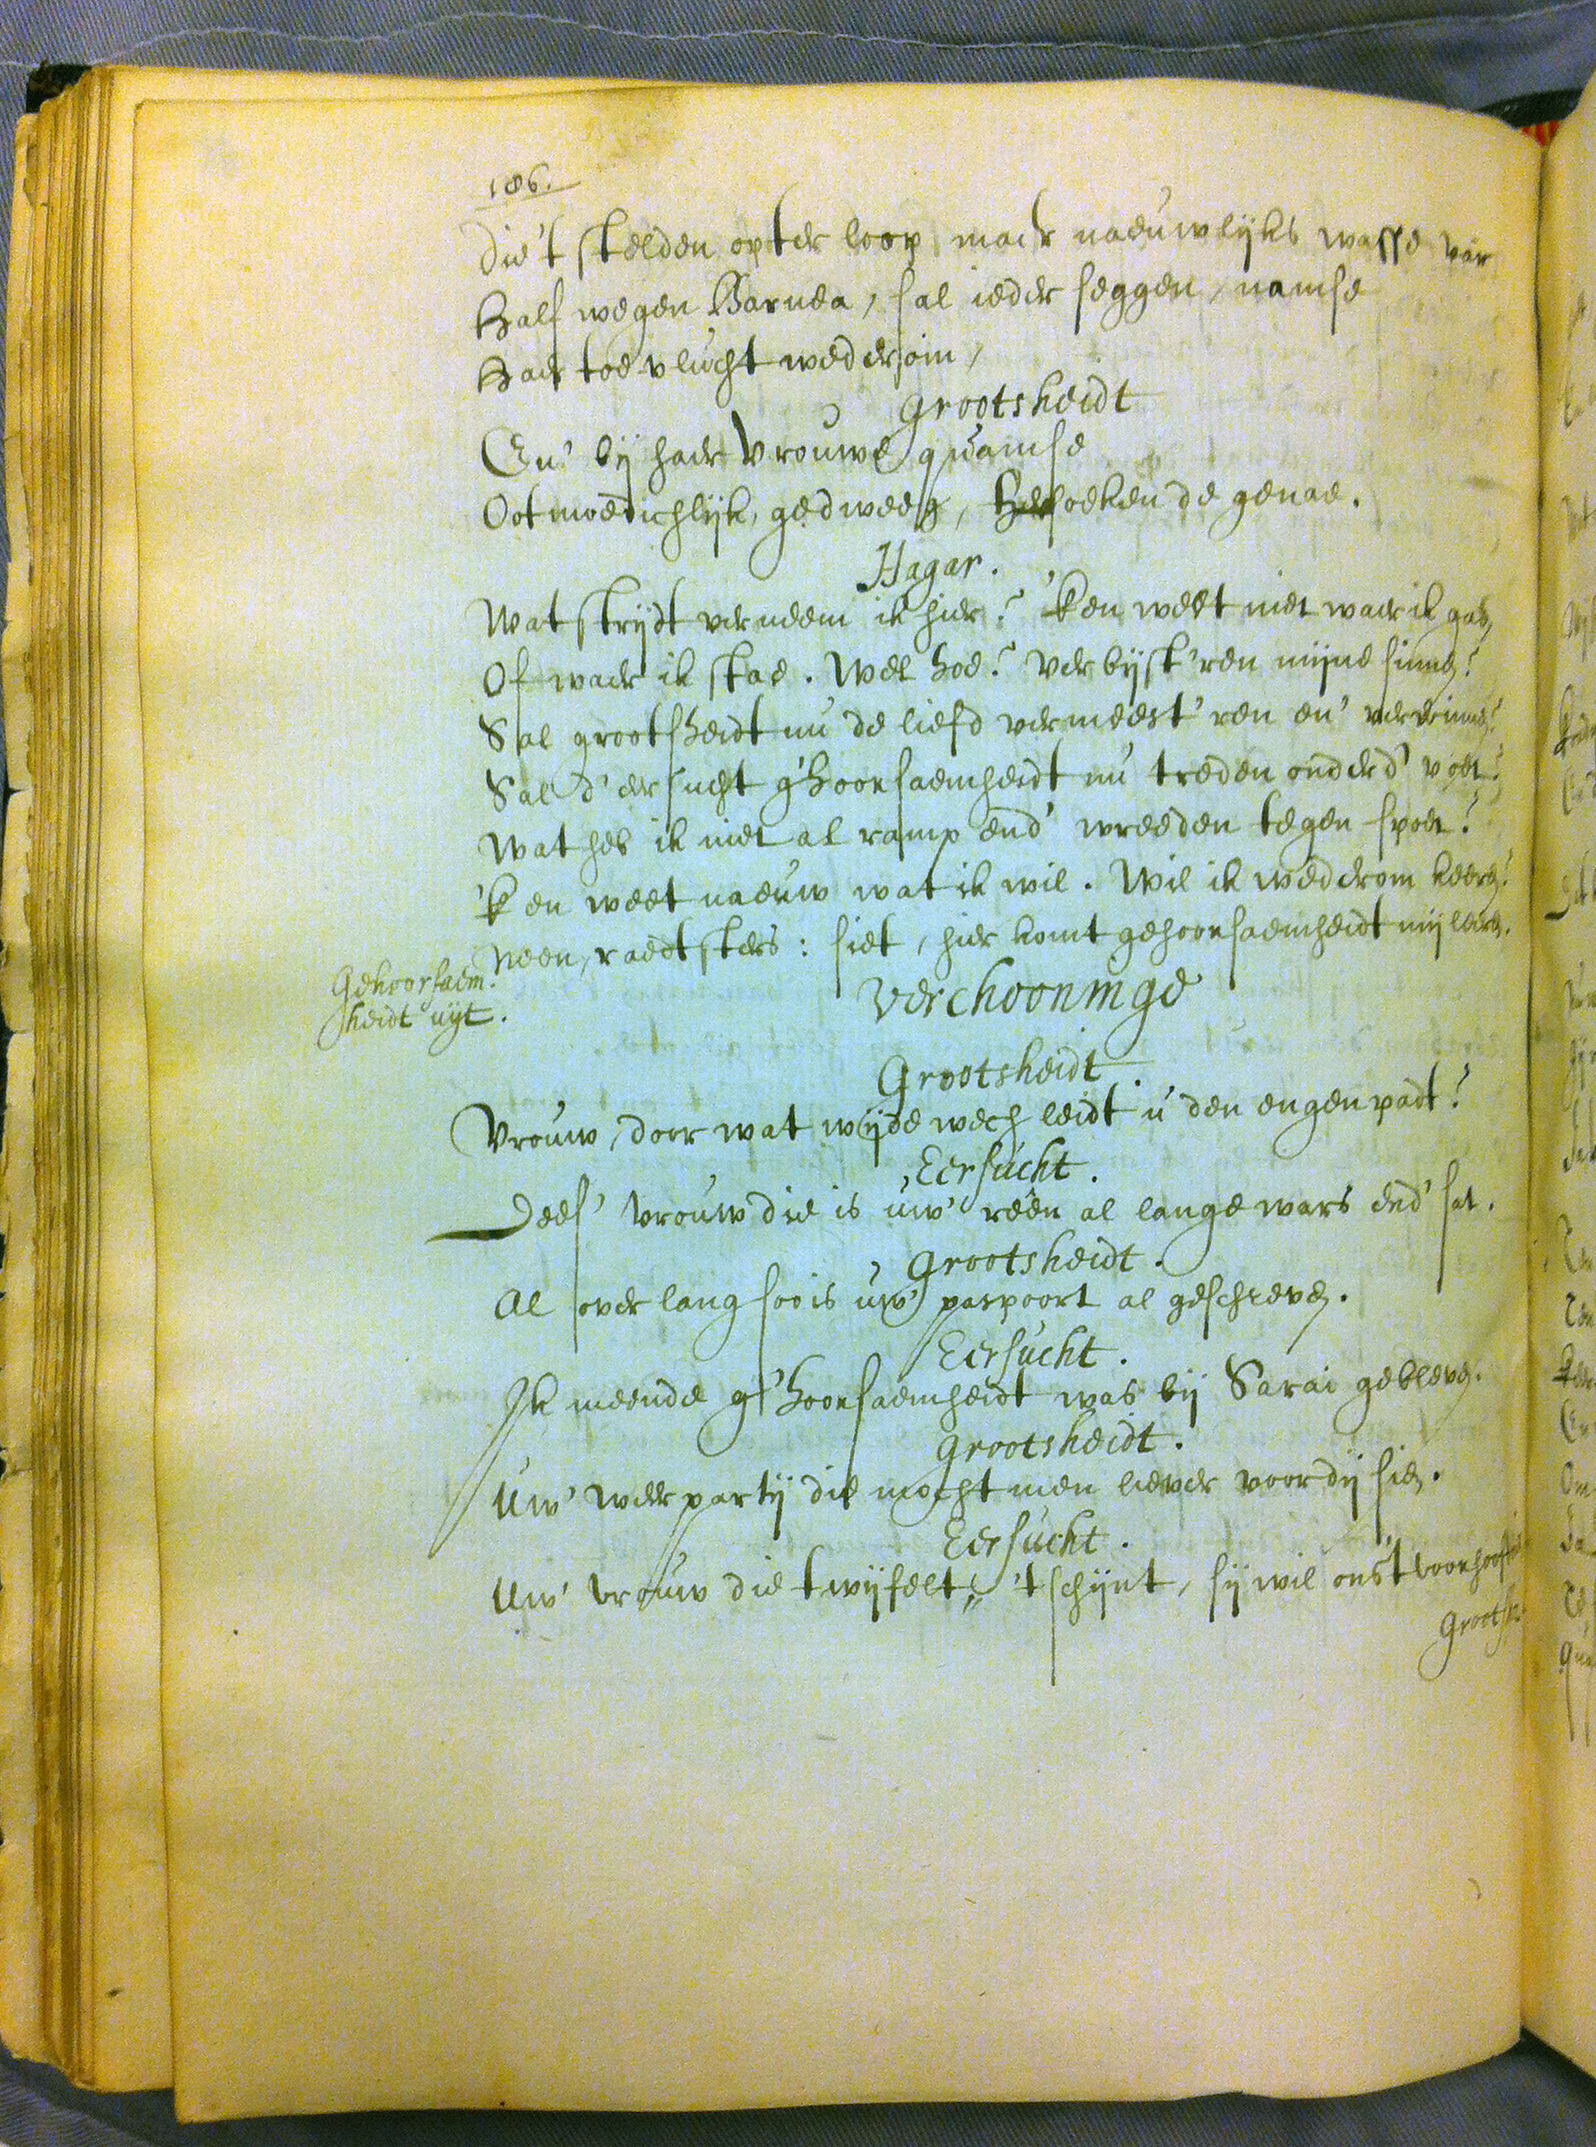 186.
Die't stelden opter loop maer naeuwlijks wasse
Half wegen Barnea, sal ieder seggen, namse
Haer toevlucht wederom,
Grootsheidt
En' bij haer vrouwe quamse
Ootmoedichlijk, gedweeg, de genae.
Hagar.
Wat strijdt verneem ik hier? 'k en weet niet waer ik gae,
Of waer ik stae. Wel hoe? verbijst'ren mijne sinnen?
Sal grootsheidt nu de liefd vermeest'ren en' verwinnen?
Sal d'eersucht g'hoorsaemheidt nu treden onder d' voet?
Wat heb ik niet al ramp end' wreeden tegenspoet?
'k en weet naeuw wat ik wil. Wil ik wederom keeren?
Neen, raedtsters: siet, hier komt gehoorsaemheidt mij leeren.
Gehoorsaem-
heidt uijt.
Verthooninge
Grootsheidt
Vrouw, door wat wijde wech leidt u den engen padt?
Eersucht.
Dees' vrouw die is uw' reên al lange wars end' sat.
Grootsheidt.
Al over lang soo is uw' paspoort al geschreven.
Eersucht.
Ik meende g'hoorsaemheidt was bij Sarai gebleven.
Grootsheidt.
Uw' weerpartij die mocht men liever voor dij sien.
Eersucht.
Uw' vrouw die twijfelt, 't schijnt, sij wil ons 't voorhooft